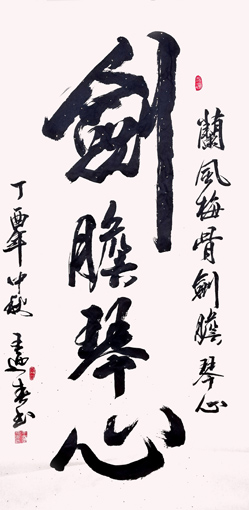 蘭風梅骨劍膽琴心
劍膽琴心
丁酉年中秋